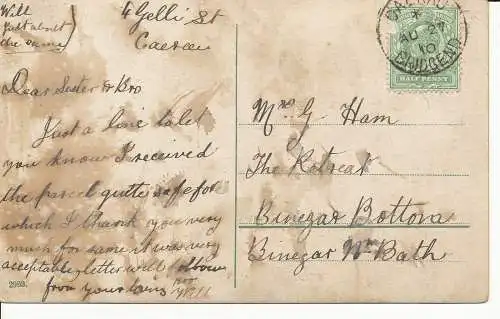 Will
just about
the same
4 Gelli St
Caerau
Dear Sister & Bro
Just a line to let
you know I received
the parcel quite safe for
which I thank you very
much for same it was very
acceptable letter will follow
from your loving
Mrs G Ham
The Retreat
Binegar Bottom
Binegar Nr Bath
CAERAU
AU 24
10
BRIDGEND
HALF PENNY
2983.